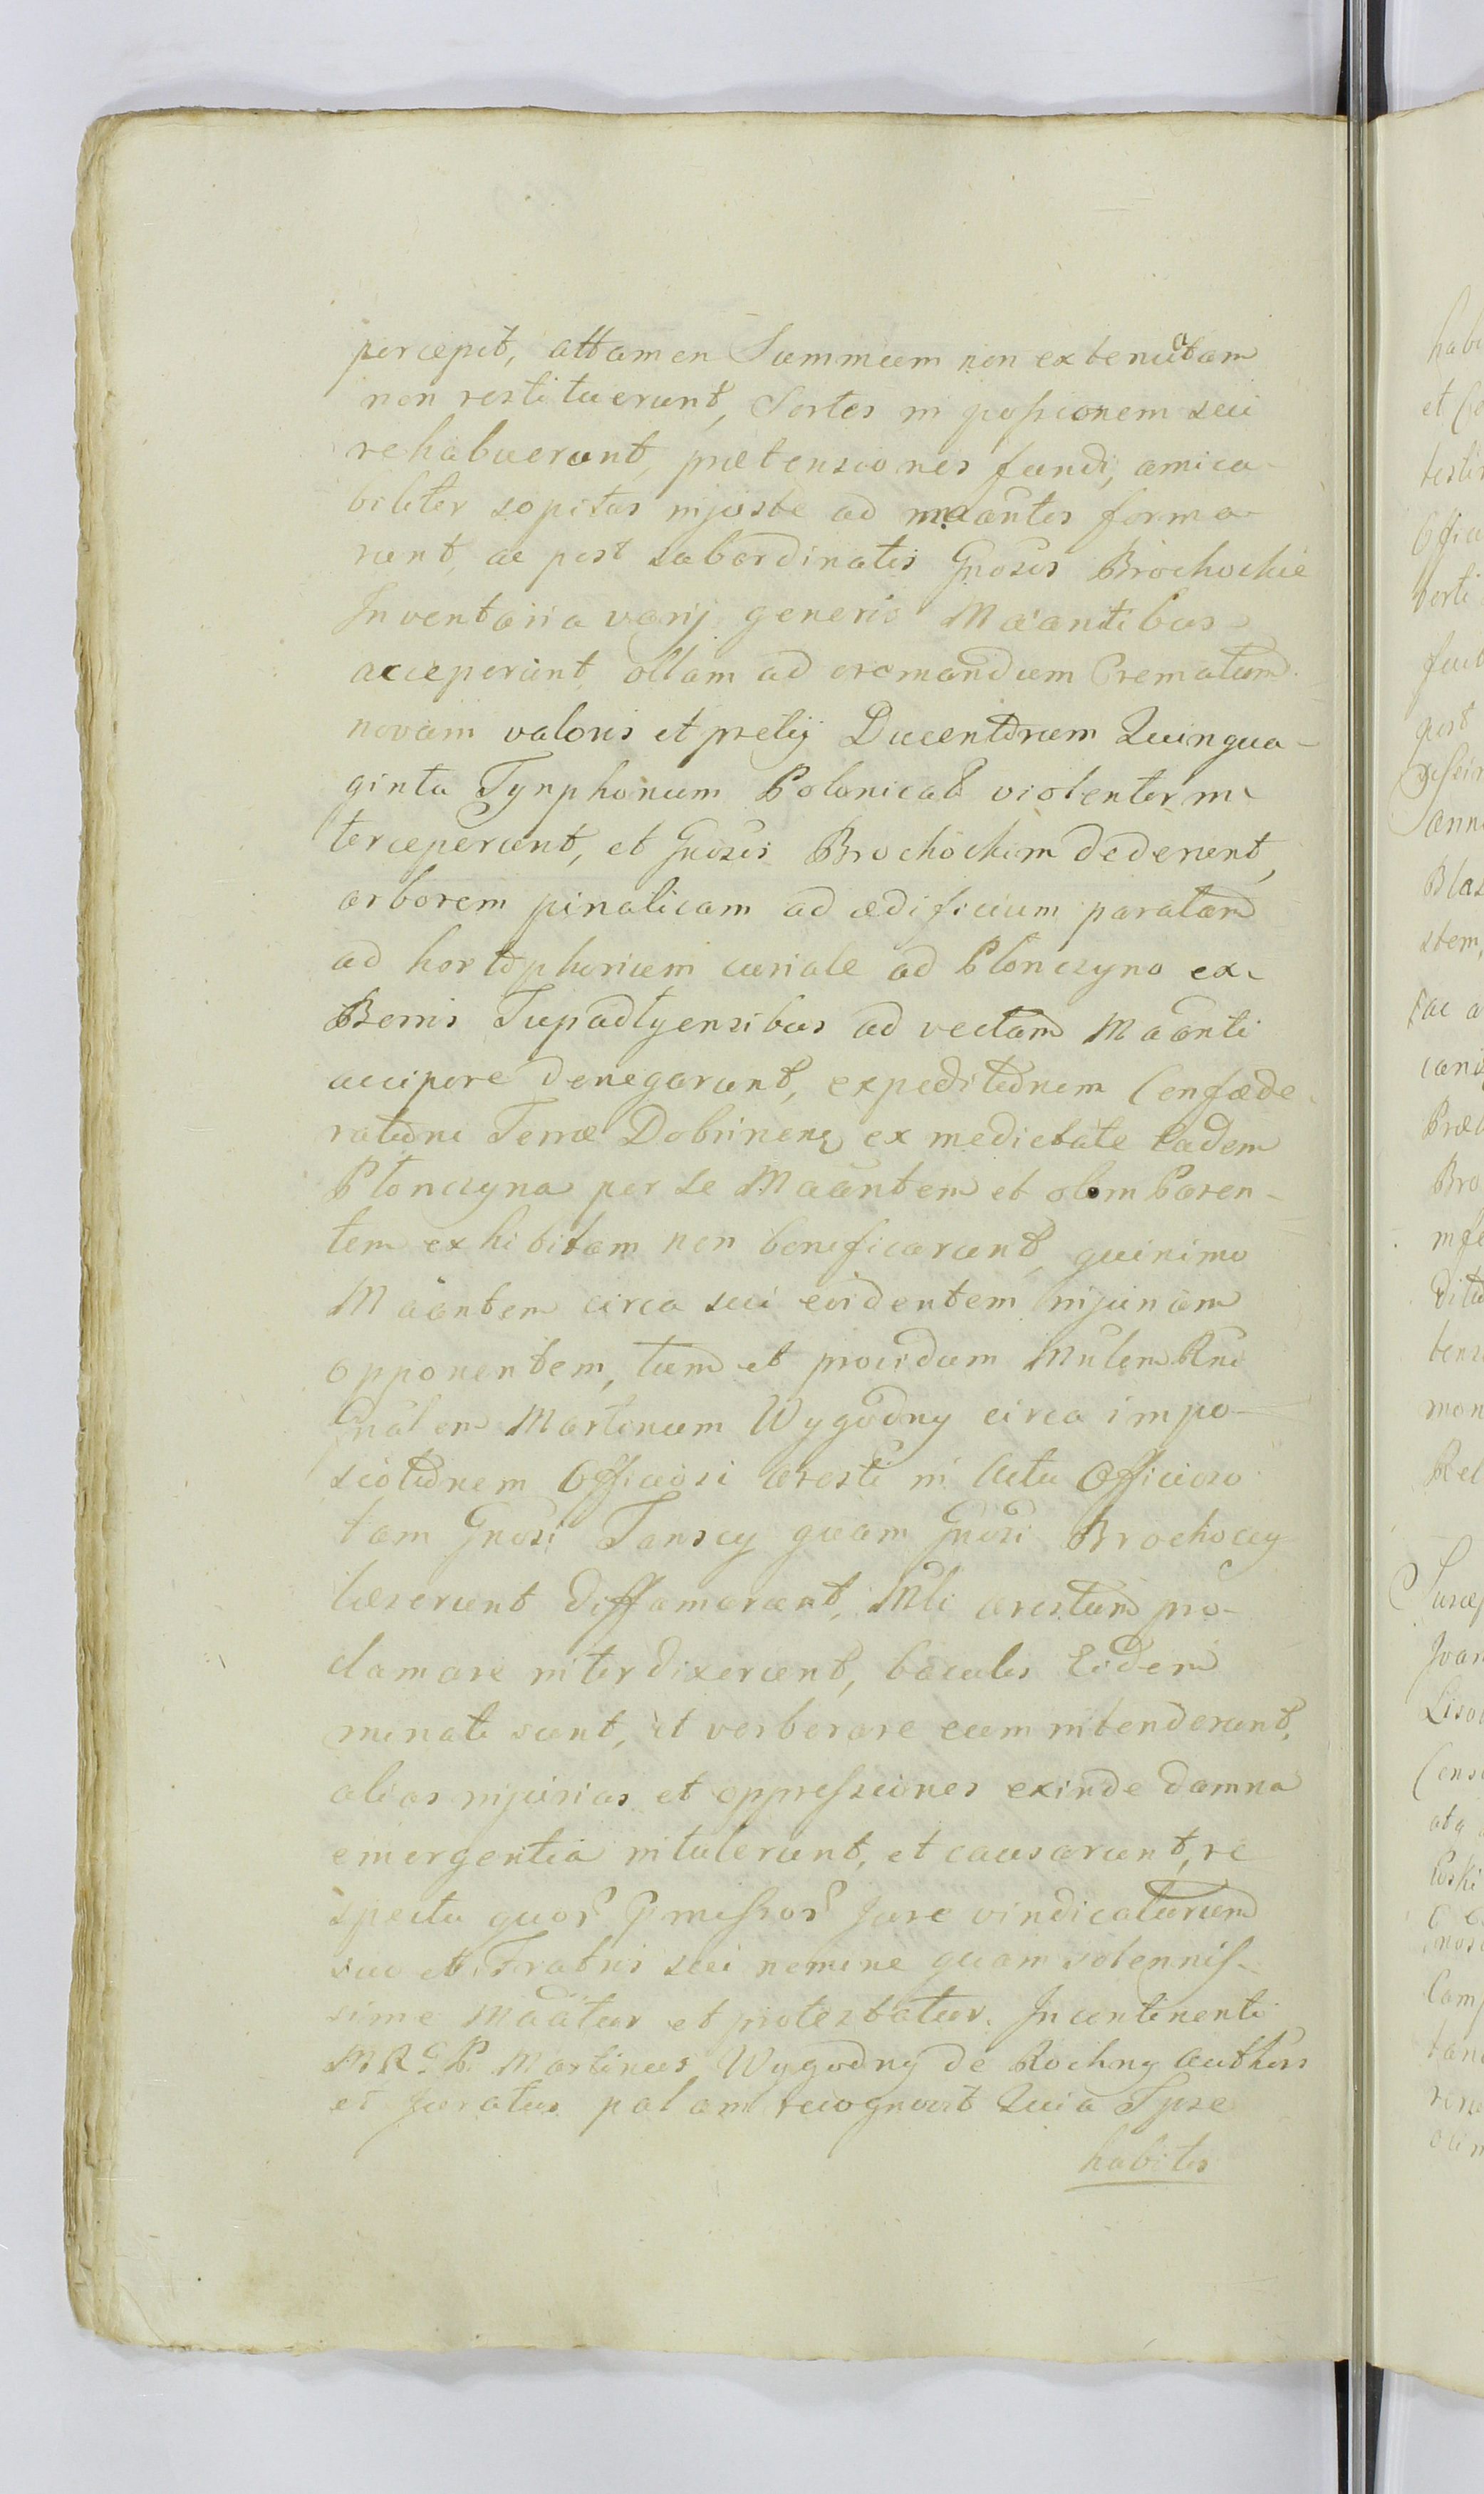 percepit, attamen Summam non extenuatam
non restituerunt, Sortes in possionem sui
rehabuerunt, prætensiones fundi, amica-
biliter sopitas injuste ad maantes forma-
runt, ac post subordinatis Gnosis Brochockie
Inventaria varij generis Maantibus
acceperunt, ollam ad cremandum Crematum
novam valoris et pretij Ducentorum Quinqua-
ginta Tynphonum Polonical violenter in-
terceperunt, et Gnosis Brochockim dederunt,
arborem pinaticam ad ædificium paratam
ad hortophorium curiale ad Plonczyno ex-
Bonis Tupadlyensibus ad vectam Maanti
accipere denegarunt, expeditionem Confæde-
rationi Terræ Dobrinens ex medietate Eadem
Plonczyna per se Maantem et olim Paren-
tem exhibitam non beneficarunt, quinimo
Maantem circa sui evidentem injuriam
opponentem, tum et providum Mnlem Rnd
Gnalem Martinum Wygodny circa impo-
sicionem Officiosi aresti in Actu Officioso
tam Gnosi Tanscy quam Gnosi Brochoccy
læserunt diffamarunt, Mli arestum pro-
clamare interdixerunt, baculis Eidem
minati sunt, et verberare eum intenderunt,
alias injurias et oppressiones exinde damna
emergentia intulerunt, et causarunt, re
spectu quor Pmissor Jure vindicaturum
suo et Fratris sui nomine quam solennis-
sime Maatur et protestatur. Incontinenti
MRG P. Martinus Wygodny de Rochny Authors
et Juratus palam recognovit Quia Ipse
habitis